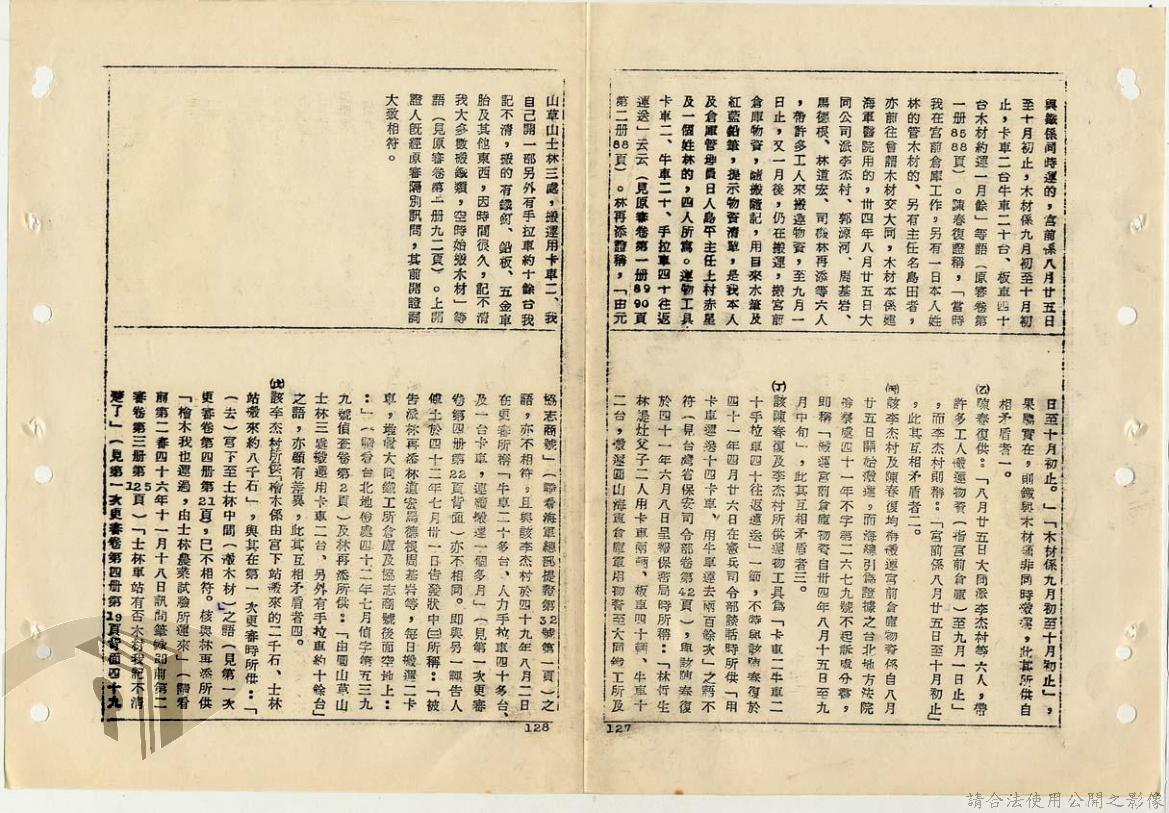 與鐵係同時運的，宮前係八月廿五日
至十月初止，木材係九月初至十月初
止，卡車二台牛車二十台、板車四十
台木材約運一月餘」等語（原審卷第
一册8588頁）。陳春復證稱，「當時
我在宮前倉庫工作，另有一日本人姓
林的管木材的、另有主任名島田者，
亦前往曾謂木材交大同，木材本係建
海軍醫院用的，卅四年八月廿五日大
同公司派李杰村、郭源河、周基岩、
馬德根、林道宏、司機林再添等六人
，帶許多工人來搬運物資，至九月一
日止，又一月後，仍在搬運，搬宮前
倉庫物資，隨搬隨記，用自來水筆及
紅藍鉛筆，提示物資清單，是我本人
及倉庫管理員日人島平主任上村赤星
及一個姓林的，四人所寫。運物工具
卡車二、牛車二十、手拉車四十往返
運送」云云（見原審卷第一册8990頁
第二册88頁）。林再添證稱，「由元
日至十月初止。」「木材係九月初至十月初止」，
果屬實在，則鐵與木材並非同時搬運，此其所供自
相矛盾者一。
㈡陳春復供：「八月廿五日大同派李杰村等六人，帶
許多工人搬運物資（指宮前倉庫）至九月一日止」
，而李杰村則稱：「宮前係八月廿五日至十月初止」
，此其互相矛盾者二。
㈢該李杰村及陳春復均稱搬運宮前倉庫物資係自八月
廿五日開始搬運，而海總引為證據之台北地方法院
檢察處四十一年不字第二六七九號不起訴處分書，
即稱「搬運宮前倉庫物資自卅四年八月十五日至九
月中旬」，此其互相矛盾者三。
㈣該陳春復及李杰村所供運物工具為「卡車二牛車二
十手拉車四十往返運送」一節，不特與該陳春復於
四十一年四月廿六日在憲兵司令部談話時所供「用
卡車運送十四卡車、用牛車運去兩百餘次」之語不
符（見台灣省保安司令部卷第42頁），與該陳春復
於四十一年六月八日呈報保密局時所稱：「林哲生
林提灶父子二人用卡車兩輛、板車四十輛、牛車十
二台，搬運圓山海軍倉庫軍用物資至大同鐵工所及
127
山草山士林三處，搬運用卡車二、我
自己開一部另外有手拉車約十餘台我
記不清，搬的有鐵釘、鉛板、五金車
胎及其他東西，因時間很久，記不清
我大多數搬鐵類，空時始搬木材」等
語（見原審卷第一册九二頁）。上開
證人既經原審隔別訊問，其前開證詞
大致相符。
協志商號」（詳看海軍總部提證第32號第一頁）之
語，亦不相符，且與該李杰村於四十九年八月二日
在更審所稱「牛車二十多台、人力手拉車四十多台、
及一台卡車，連續搬運一個多月」（見第一次更審
卷第四册第22頁背面）亦不相同。即與另一報告人
傅土於四十二年七月卅一日告發狀中㈢所稱：「被
告派林再添林道宏馬德根周基岩等，每日搬運二卡
車，堆積大同鐵工所倉庫及協志商號後面空地上：
：」（詳看台北地檢處四十二年七月偵字第五三九
九號偵查卷第2頁）及林再添所供：「由圓山草山
士林三處搬運用卡車二台，另外有手拉車約十餘台」
之語，亦頗有差異，此其互相矛盾者四。
㈤該李杰村所供「檜木係由宮下站搬來的二千石、士林
站搬來約八千石」，與其在第一次更審時所供：「
（去）宮下至士林中間（搬木材）之語（見第一次
更審卷第四册第21頁，已不相符。核與林再添所供
「檜木我也運過，由士林農業試驗所運來」（詳看
前第二審四十六年十月十八日訊問筆錄即前第二
審卷第三册第125頁）「士林車站有否木材我記不清
楚了」（見第一次更審卷第四册第19頁背面四十九
128
請合法使用公開之影像